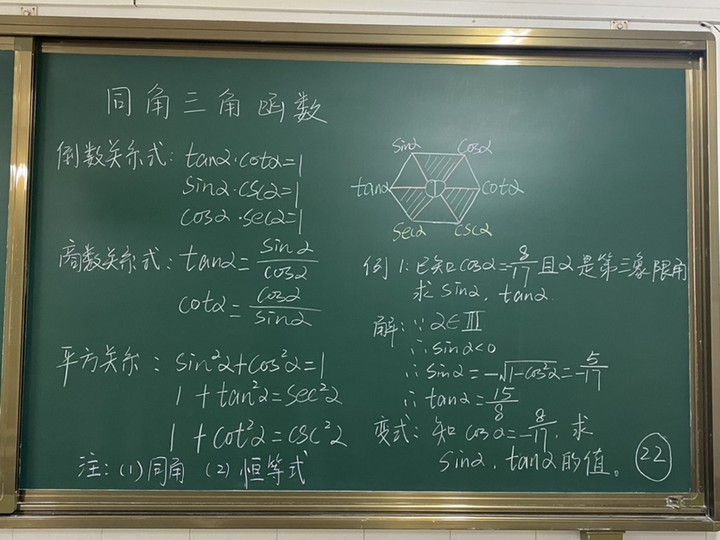 同角三角函数
倒数关系式: tanα·cotα=1
sinα·cscα=1
cosα·secα=1
商数关系式: tanα=sinα/cosα
cotα=cosα/sinα
平方关系: sin²α+cos²α=1
1+tan²α=sec²α
1+cot²α=csc²α
注: (1)同角 (2)恒等式
sinα cosα
tanα 1 cotα
secα cscα
例1: 已知cosα=8/17且α是第三象限角
求sinα, tanα.
解: ∵α∈Ⅲ
∴sinα<0
∴sinα=-√1-cos²α=-5/17
∴tanα=15/8
变式: 知cosα=-8/17, 求
sinα, tanα的值。
22